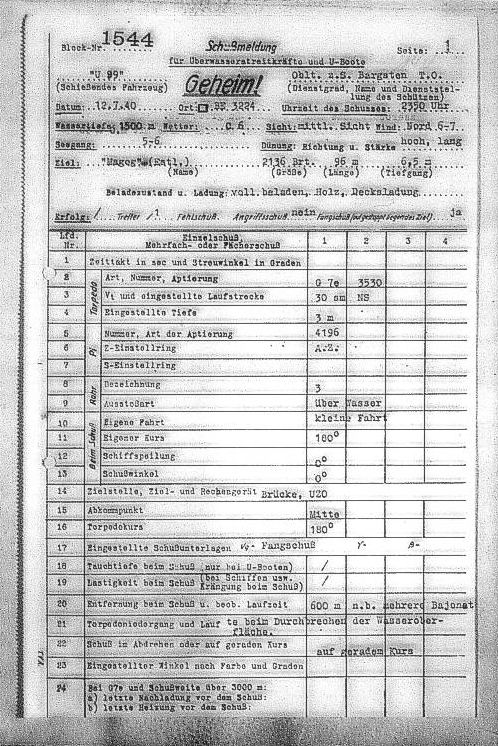 Block-Nr. 1544
Schußmeldung
Seite: 1
für Überwasserstreitkräfte und U-Boote
"U 99"
(Schießendes Fahrzeug)
Geheim!
Oblt. z.S. Bargsten T.O.
(Dienstgrad, Name und Dienststellung des Schützen)
Datum: 12.7.40 Ort: BE 3224 Uhrzeit des Schusses: 2350 Uhr
Wassertiefe: 1500 m Wetter: C 6 Sicht: mittl. Sicht Wind: Nord 6-7
Seegang: 5-6 Dünung: Richtung u. Stärke hoch, lang
Ziel: "Magog" (Eatl.) 2136 Brt. 96 m 6,5 m
(Name) (Größe) (Länge) (Tiefgang)
Beladezustand u. Ladung: voll beladen, Holz, Decksladung
Erfolg: / Treffer / 1 Fehlschuß Angriffsschuß nein Fangschuß (auf gestoppt liegendes Ziel) ja
Lfd. Nr. Einzelschuß, Mehrfach- oder Fächerschuß 1 2 3 4
1 Zeittakt in sec und Streuwinkel in Graden
Torpedo
2 Art, Nummer, Aptierung G 7e 3530
3 Vt und eingestellte Laufstrecke 30 sm NS
4 Eingestellte Tiefe 3 m
Pi
5 Nummer, Art der Aptierung 4196
6 Z-Einstellring A.Z.
7 S-Einstellring
Rohr
8 Bezeichnung 3
9 Ausstoßart über Wasser
Beim Schuß
10 Eigene Fahrt kleine Fahrt
11 Eigener Kurs 180°
12 Schiffspeilung 0°
13 Schußwinkel 0°
14 Zielstelle, Ziel- und Rechengerät Brücke, UZO
15 Abkommpunkt Mitte
16 Torpedokurs 180°
17 Eingestellte Schußunterlagen Vg- Fangschuß γ- β-
18 Tauchtiefe beim Schuß (nur bei U-Booten) /
19 Lastigkeit beim Schuß (bei Schiffen usw. Krängung beim Schuß) /
20 Entfernung beim Schuß u. beob. Laufzeit 600 m n.b. mehrere Bajonat
21 Torpedoniedergang und Lauf te beim Durchbrechen der Wasserober-
fläche.
22 Schuß im Abdrehen oder auf geraden Kurs auf geradem Kurs
23 Eingestellter Winkel nach Farbe und Graden
24 Bei G7e und Schußweite über 3000 m:
a) letzte Nachladung vor dem Schuß:
b) letzte Heizung vor dem Schuß: